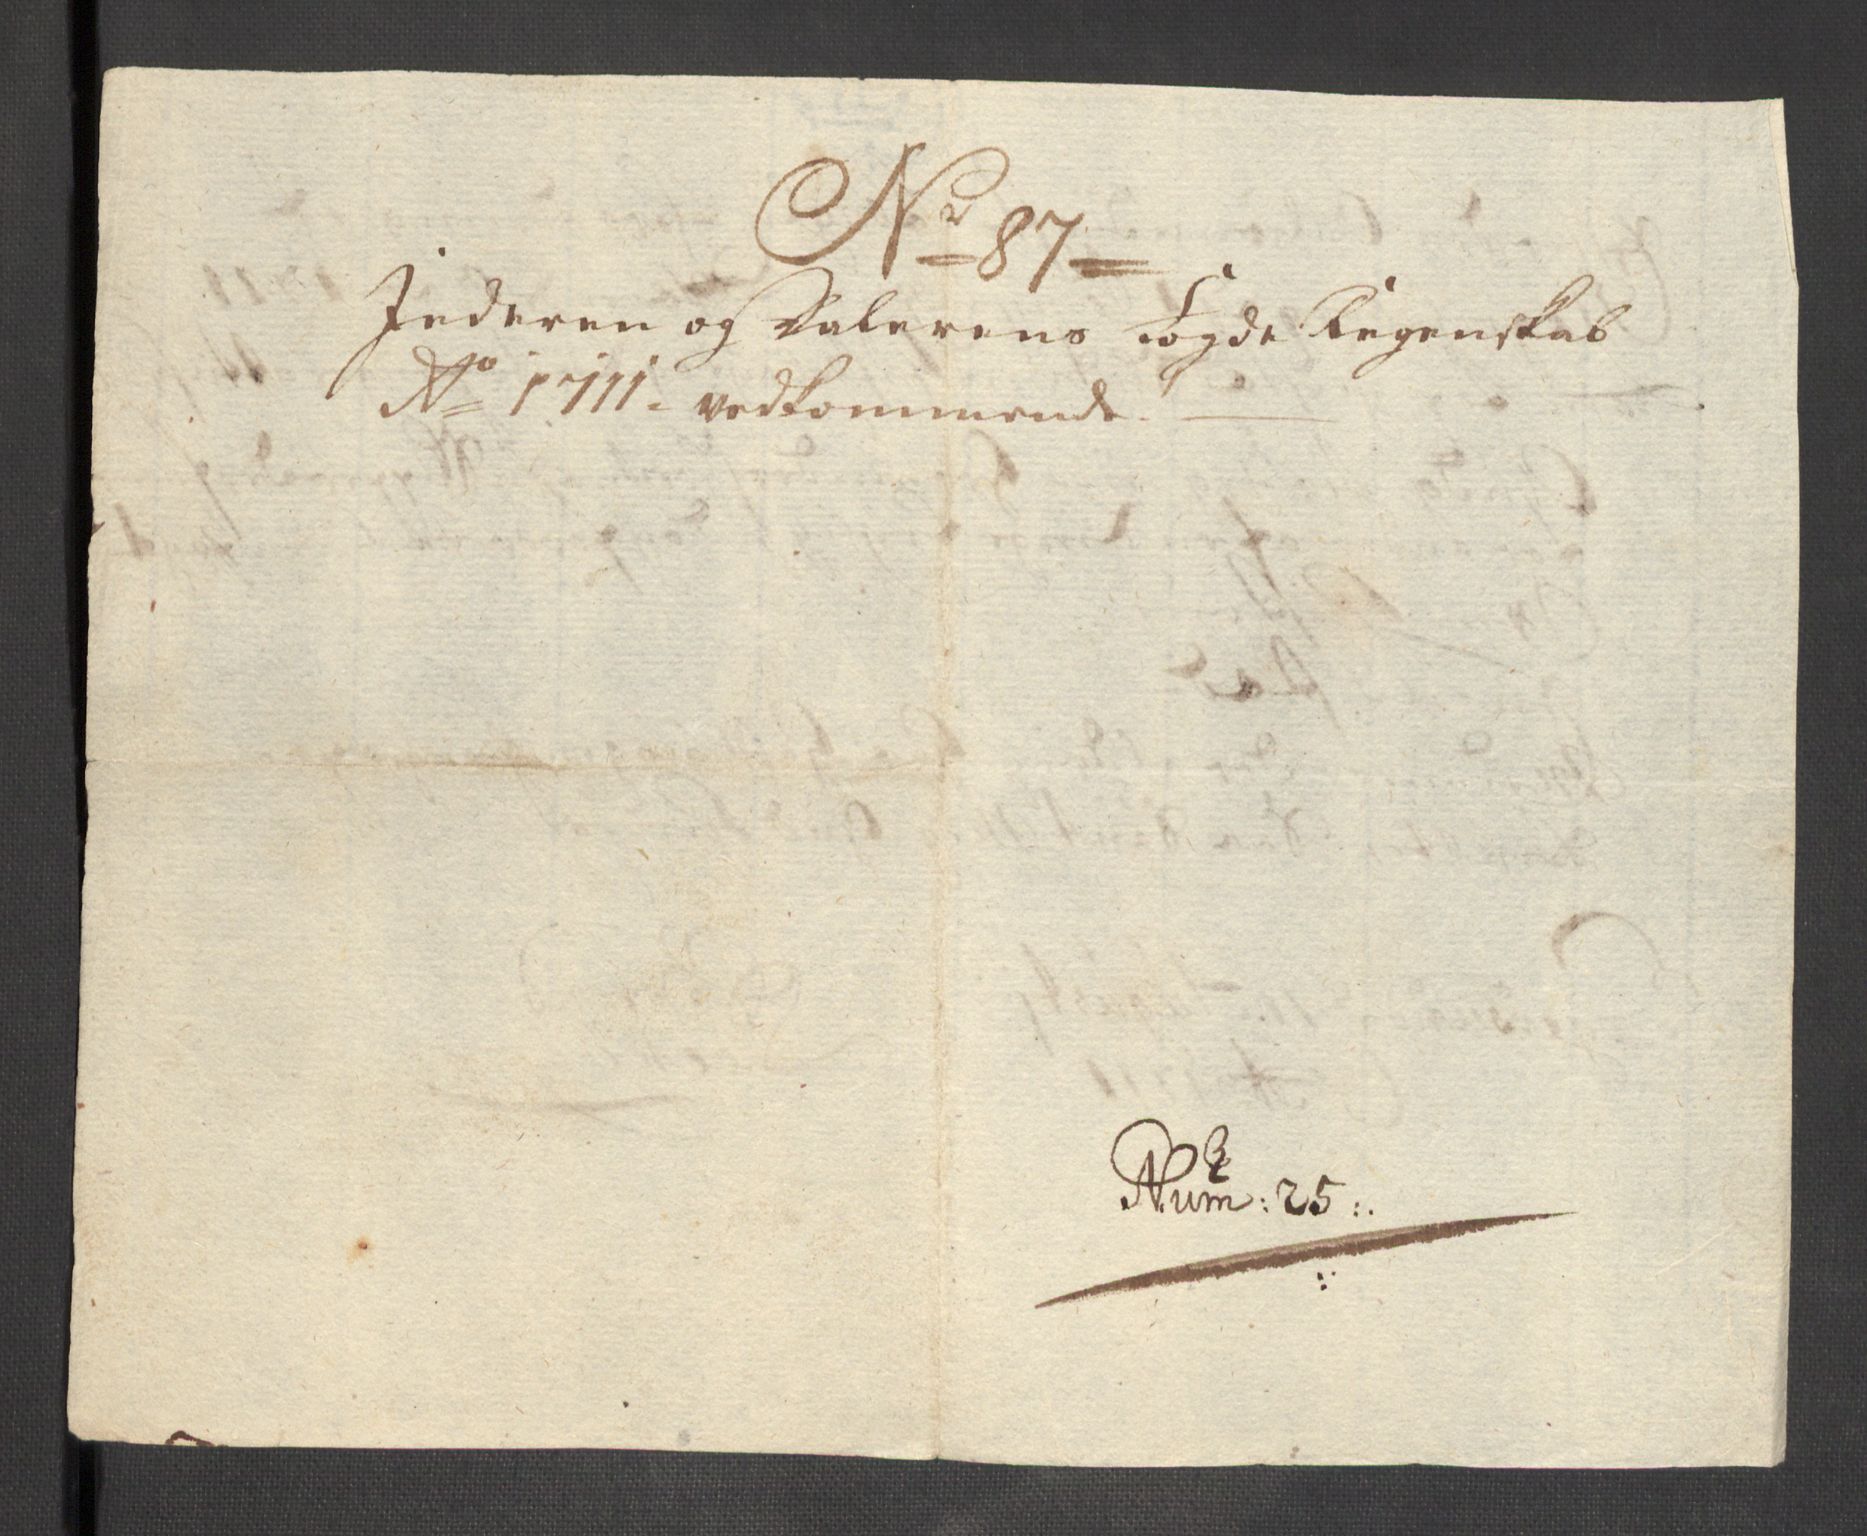 No 87
Jederen og Dalerens Fogde Regenskab
Ao 1711. vedkommende.
Num: 25:.